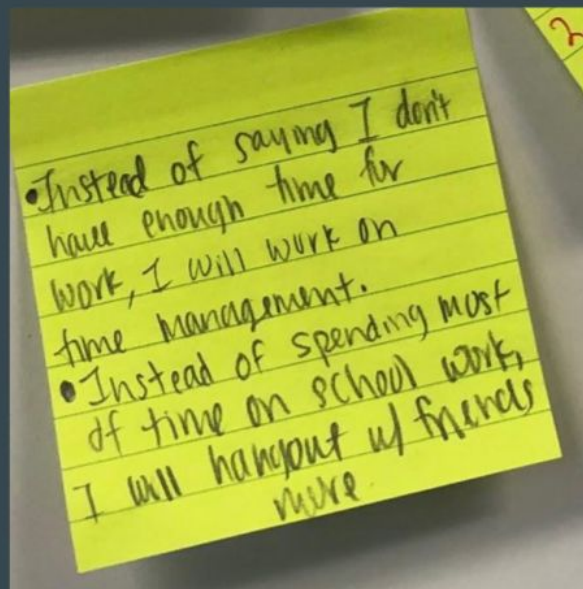 •Instead of saying I don't
have enough time for
work, I will work on
time management.
•Instead of spending most
of time on school work,
I will hangout w/ friends
more.
2